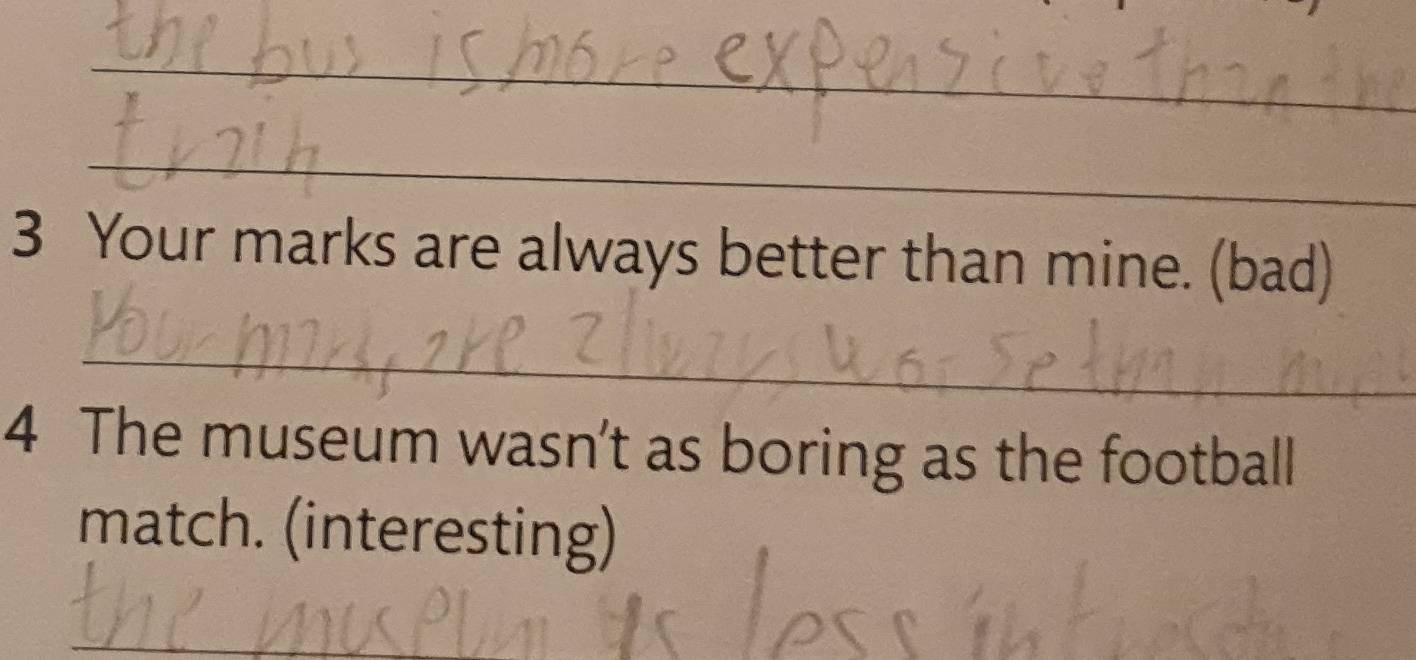 the bus is more expensive than the
train
3 Your marks are always better than mine. (bad)
your marks are always worse than
4 The museum wasn't as boring as the football
match. (interesting)
the museum is less